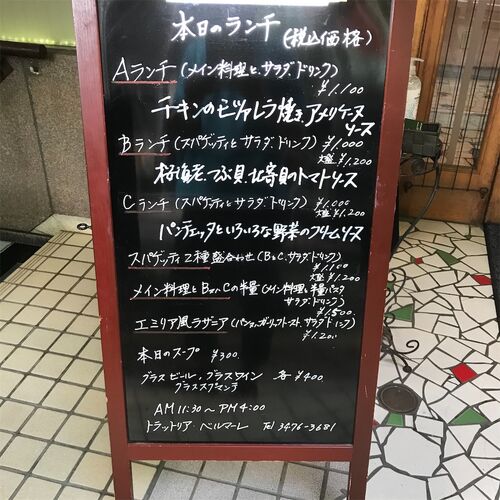 本日のランチ (税込価格)
Aランチ (メイン料理と、サラダ、ドリンク)
¥1.100
チキンのモッツァレラ焼き、アメリケーヌ
ソース
Bランチ (スパゲッティとサラダ、ドリンク) ¥1.000
大盛 ¥1.200
桜海老、つぶ貝、北寄貝のトマトソース
Cランチ (スパゲッティとサラダ、ドリンク) ¥1.000
大盛 ¥1.200
パンチェッタといろいろな野菜のクリームソース
スパゲッティ2種盛合わせ (BとC、サラダ、ドリンク)
¥1.100
大盛 ¥1.200
メイン料理とBor.Cの半量 (メイン料理と半量パスタ
サラダ、ドリンク)
¥1.500
エミリア風ラザーニア (ガーリックトースト、サラダ、ドリンク)
¥1.200
本日のスープ ¥300.
グラスビール、グラスワイン 各 ¥400.
グラススプマンテ
AM 11:30〜PM 4:00
トラットリア・ベルマーレ Tel 3476-3681